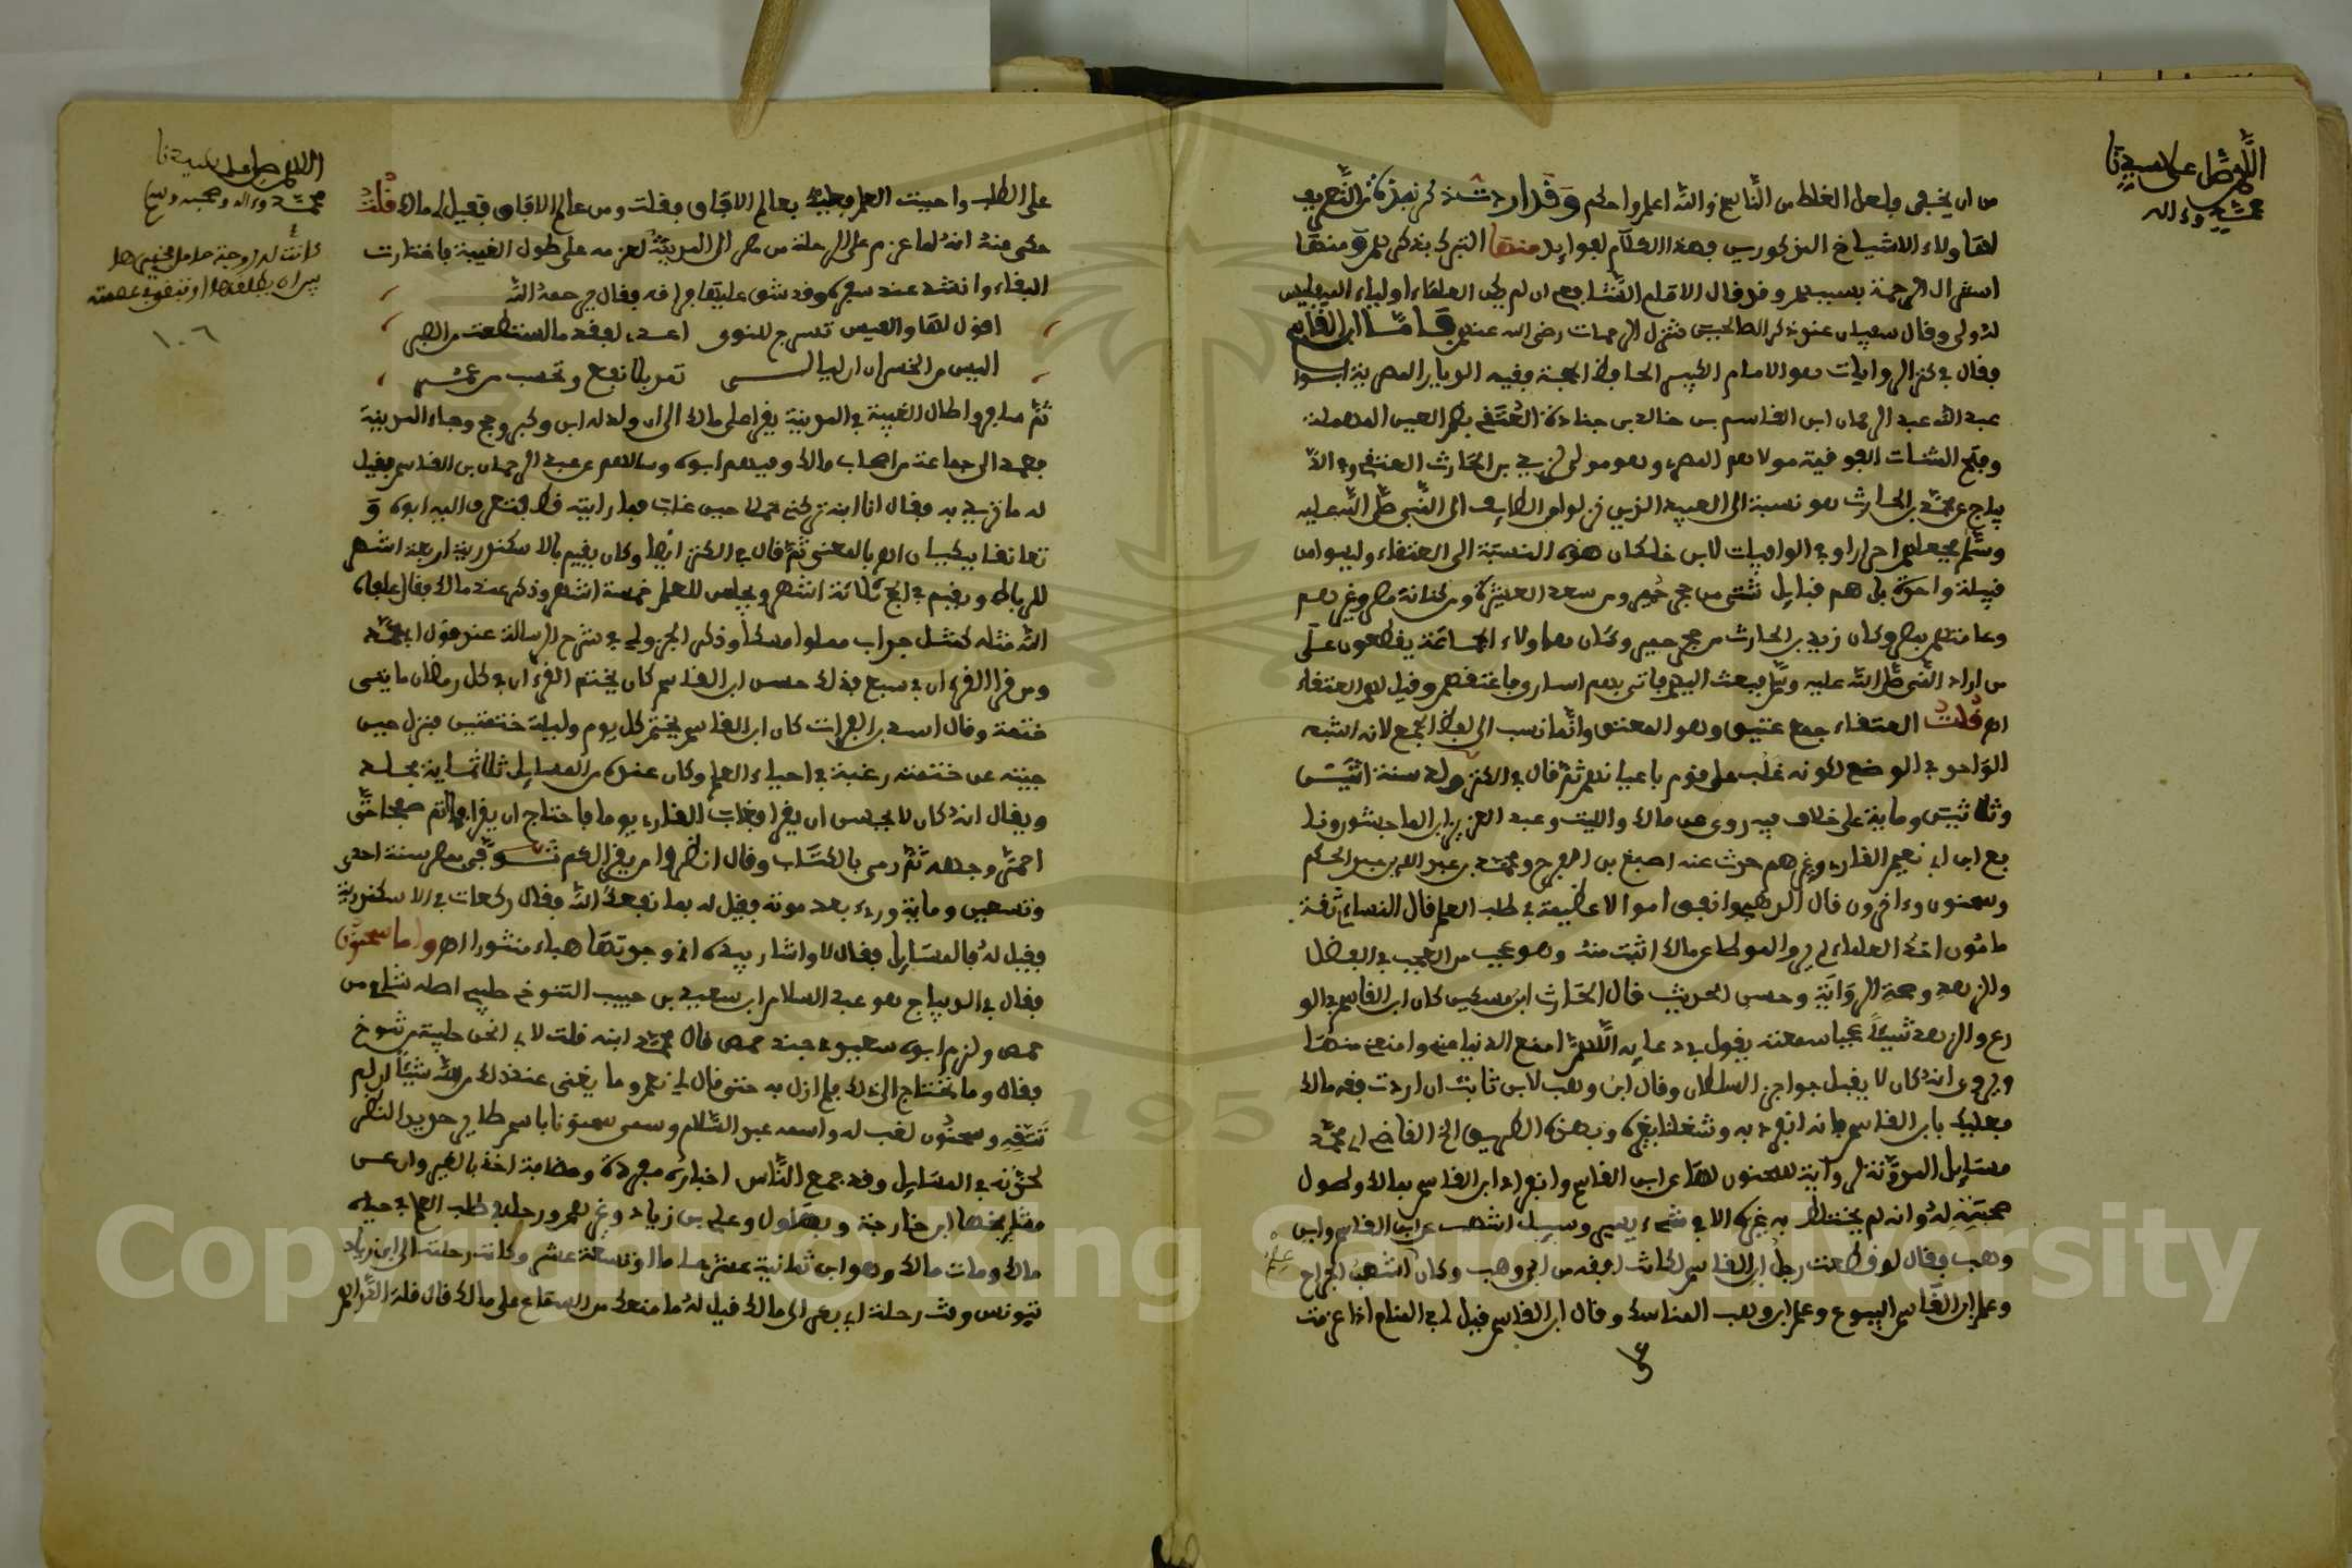 اللهم صل على سيدنا
محمد وءاله
من ان يخفى ولعل الغلط من الناسخ والله اعلم واحكم وقد اردت ذكر نبذة من التعريف
لهاولاء الاشياخ المذكورين بهذا الكلام لفوايد منها التبرك بذكرهم ومنها
استنزال الرحمة بسببهم وقد قال الامام الشافعي ان لم يكن العلماء اولياء الله فليس
لله ولي وقال سفيان عند ذكر الصالحين تنزل الرحمات رضي الله عنهم فاما ابن القاسم
فقال في كنز الروايات هو الامام الكبير الحافظ الحجة فقيه الديار المصرية ابو
عبد الله عبد الرحمان ابن القاسم بن خالد بن جنادة العتقي بضم العين المهملة
وفتح التاء المثناة الفوقية مولاهم المصري وهو مولى زبيد بن الحارث العتقي وفي الد
يباج عن محمد بن الحارث هو نسبة الى العبيد الذين نزلوا من الطايف الى النبي صلى الله عليه
وسلم فجعلهم احرارا وفي الوافيات لابن خلكان هذه النسبة الى العتقاء وليسوا من
قبيلة واحدة بل هم قبايل شتى من حجر حمير ومن سعد العشيرة ومن كنانة مضر وغيرهم
وعامتهم بمصر وكان زبيد بن الحارث من حجر حمير وكان هاولاء الجماعة يقطعون على
من اراد النبي صلى الله عليه وسلم فبعث اليهم فاتي بهم اسارى فاعتقهم وقيل لهم العتقاء
اهـ قلت العتقاء جمع عتيق وهو المعتق وانما نسب الى لفظ الجمع لانه اشبه
الواحد في الوضع لكونه غلب على قوم باعيانهم ثم قال في الكنز ولد سنة اثنتين
وثلاثين وماية على خلاف فيه روى عن مالك والليث وعبد العزيز ابن الماجشون ونا
فع ابن ابي نعيم القارئ وغيرهم حدث عنه اصبغ بن الفرج ومحمد بن عبد الله بن عبد الحكم
وسحنون وءاخرون قال الذهبي وانفق اموالا عظيمة في طلب العلم قال النساءي ثقة
مامون احد العلماء لم يرو الموطا عن مالك اثبت منه وهو عجيب من العجب في الفضل
والزهد وصحة الرواية وحسن الحديث قال الحارث ابن مسكين كان ابن القاسم في الو
رع والزهد شيئا عجيبا سمعته يقول في دعايه اللهم امنع الدنيا مني وامنعني منها
ويروى انه كان لا يقبل جوايز السلطان وقال ابن وهب لابن ثابت ان اردت فقه مالك
فعليك بابن القاسم فانه انفرد به وشغلنا بغيره وبهذه الطريق رجح القاضي ابي محمد
مسايل المدونة لرواية سحنون لها عن ابن القاسم وانفراد ابن القاسم بمالك ولطول
صحبته له وانه لم يختلط به غيره الا في شيء يسير وسيل اشهب عن ابن القاسم وابن
وهب فقال لو قطعت رجل ابن القاسم لكانت افقه من ابن وهب وكان اشهب الجراح
وعلم ابن القاسم البيوع وعلم ابن وهب المناسك وقال ابن القاسم قيل لي في المنام اذا عزمت
على الطلب واحببت العلم فعليك بعالم الافاق فقلت ومن عالم الافاق فقيل لي مالك قلت
حكي عنه انه لما عزم على الرحلة من مصر الى المدينة لعزمه على طول الغيبة فاختارت
البقاء وانشد عند سفره وقد شق عليها فراقه فقال رحمه الله
اقول لها والعيس تسرج للنوى اعدي لفقدي ما استطعت من الصبر
اليس من الخسران ان لياليا تمر بلا نفع وتحسب من عمري
ثم سافر واطال الغيبة في المدينة يقرا على مالك الى ان ولد له ابن وكبر وحج وجاء المدينة
فعمد الى جماعة من اصحاب مالك وفيهم ابوه وسالهم عن عبد الرحمان بن القاسم فقيل
له ما تريد به فقال انا ابنه تركني حملا حين غاب فما رايته قط فتعرف اليه ابوه و
تعانقا يبكيان اهـ بالمعنى ثم قال في الكنز ايضا وكان يقيم بالاسكندرية اربعة اشهر
للرباط ويقيم في الحج ثلاثة اشهر ويجلس للعلم خمسة اشهر وذكر عند مالك فقال عافاه
الله مثله كمثل جراب مملوا مسكا وذكر الجزولي في شرح الرسالة عند قول ابي محمد
ومن قرا القرءان في سبع فذلك حسن ابن القاسم كان يختم القرءان في كل رمضان مايتي
ختمة وقال اسد بن الفرات كان ابن القاسم يختم كل يوم وليلة ختمتين فنزل حين
جيته عن ختمته رغبة في احياء العلم وكان عنده من المسايل ثلاثماية مجلد
ويقال انه كان لا يحسن ان يقرا فغاب القارئ يوما فاحتاج ان يقرا فما اتم صفحا حتى
احمر وجهه ثم رمى بالكتاب وقال انظروا من يقرا لكم توفي بمصر سنة احدى
وتسعين وماية ورءي بعد موته فقيل له بما نفعك الله فقال ركعات في الاسكندرية
فقيل له فالمسايل فقال لا واشار بيده اني وجدتها هباء منثورا اهـ واما سحنون
فقال في الديباج هو عبد السلام ابن سعيد بن حبيب التنوخي صليبي اصله شامي من
حمص ولزم ابوه سعيد في جند حمص قال محمد ابنه قلت لابي انحن صليبة من تنوخ
فقال وما تحتاج الى ذلك فلم ازل به حتى قال لي نعم وما يغني عنك ذلك من الله شيئا ان لم
تتقه وسحنون لقب له واسمه عبد السلام وسمي سحنونا باسم طاير حديد النظر
لحدته في المسايل وقد جمع الناس اخباره مفردة ومضافة اخذ بالقيروان عن
مشايخها ابن خارجة وبهلول وعلي بن زياد وغيرهم ورحل في طلب العلم في حياة
مالك ومات مالك وهو ابن ثمانية عشر عاما او تسعة عشر وكانت رحلته الى ابن زياد
بتونس وقت رحلة ابن بكير الى مالك قيل له ما منعك من السماع على مالك قال قلة الدراهم
اللهم صل على سيدنا
محمد وءاله وصحبه وسلم
كانت له زوجة حامل فخيرها
بين ان يطلقها او تبقى في عصمته
١٠٦
Copyright © King Saud University
1957